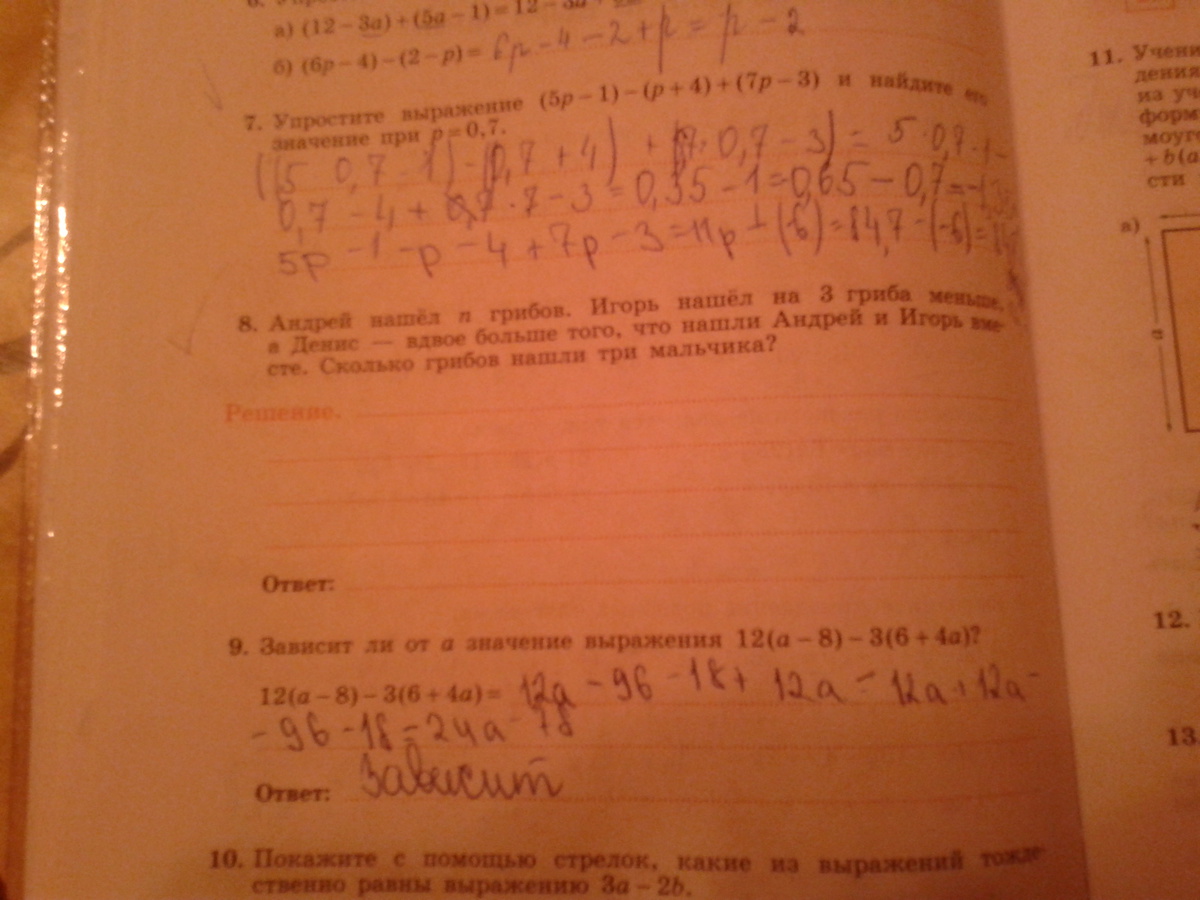 а) (12 − 3a) + (5a − 1) = 12 − 3a +
б) (6p − 4) − (2 − p) = 6p − 4 − 2 + p = p − 2
7. Упростите выражение (5p − 1) − (p + 4) + (7p − 3) и найдите его
значение при p = 0,7.
((5 0,7 − 1) − (0,7 + 4) + (7 · 0,7 − 3) = 5 · 0,7 − 1 −
0,7 − 4 + 0,7 · 7 − 3 = 0,35 − 1 = 0,65 − 0,7 =
5p − 1 − p − 4 + 7p − 3 = 11p + (6) = 84,7 − (−6) =
8. Андрей нашёл n грибов. Игорь нашёл на 3 гриба меньше,
а Денис — вдвое больше того, что нашли Андрей и Игорь вме-
сте. Сколько грибов нашли три мальчика?
Решение.
Ответ:
9. Зависит ли от a значение выражения 12(a − 8) − 3(6 + 4a)?
12(a − 8) − 3(6 + 4a) = 12a − 96 − 18 + 12a = 12a + 12a −
− 96 − 18 = 24a − 78
Ответ: Зависит
10. Покажите с помощью стрелок, какие из выражений тожде-
ственно равны выражению 3a − 2b.
11. Учени
дения
из уч
форм
моуг
+ b(a
сти
а)
a
12.
13.